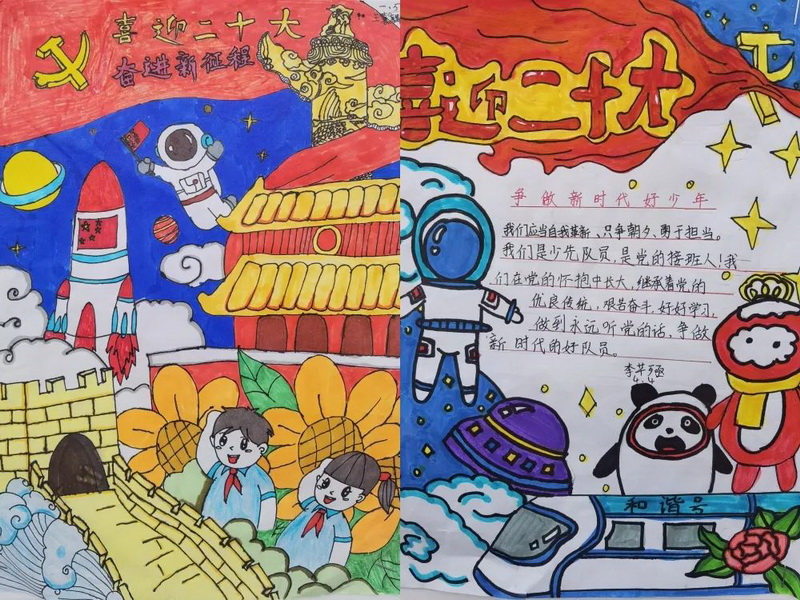 喜迎二十大
奋进新征程
喜迎二十大
争做新时代好少年
我们应当自我革新、只争朝夕、勇于担当。
我们是少先队员,是党的接班人!我
们在党的怀抱中长大,继承着党的
优良传统,艰苦奋斗,好好学习,
做到永远听党的话,争做
新时代的好队员。
4.4
和谐号